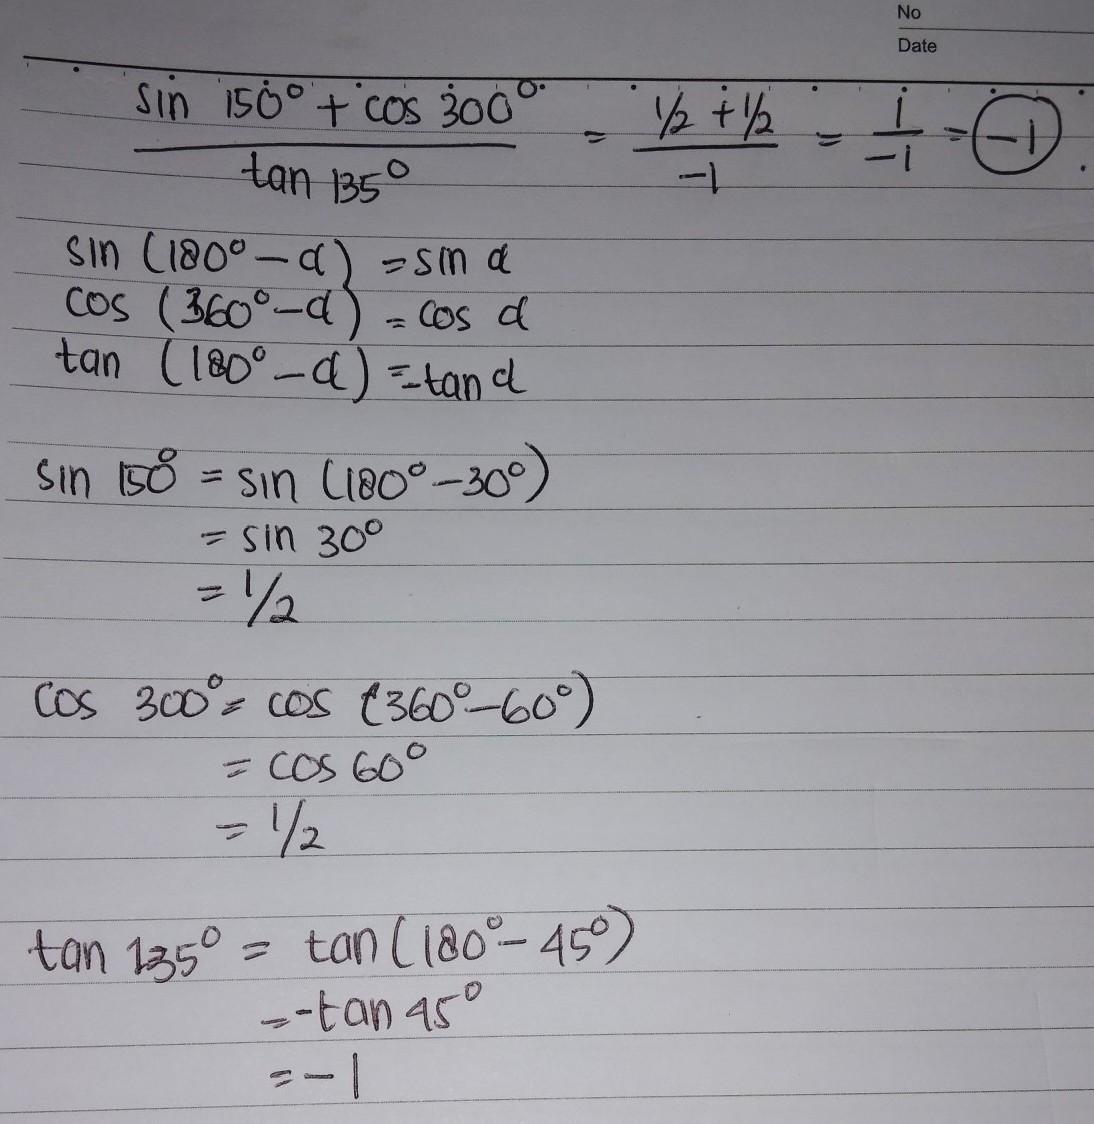 No
Date
sin 150° + cos 300° / tan 135° = ½ + ½ / -1 = 1 / -1 = -1.
sin (180° - α) = sin α
cos (360° - α) = cos α
tan (180° - α) = -tan α
sin 150° = sin (180° - 30°)
= sin 30°
= 1/2
cos 300° = cos (360° - 60°)
= cos 60°
= 1/2
tan 135° = tan (180° - 45°)
= -tan 45°
= -1